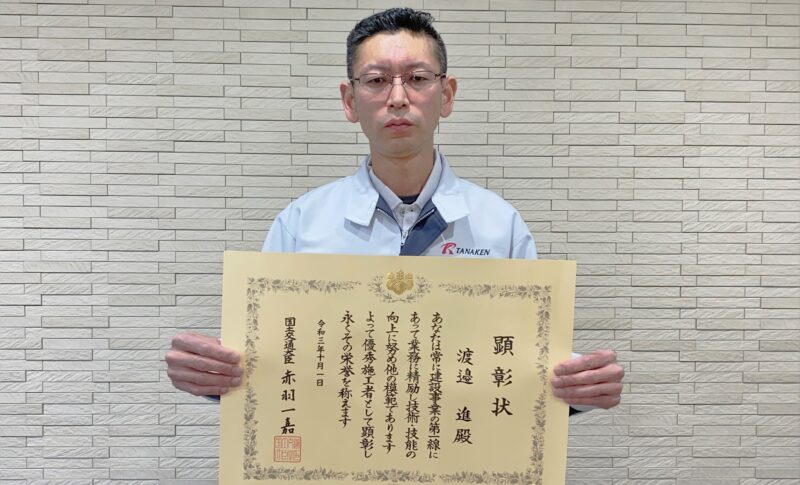 TANAKEN
顕彰状
渡邉 進 殿
あなたは常に建設事業の第一線に
あって業務に精励し技術・技能の
向上に努め他の模範であります
よって優秀施工者として顕彰し
永くその栄誉を称えます
令和三年十月一日
国土交通大臣 赤羽一嘉